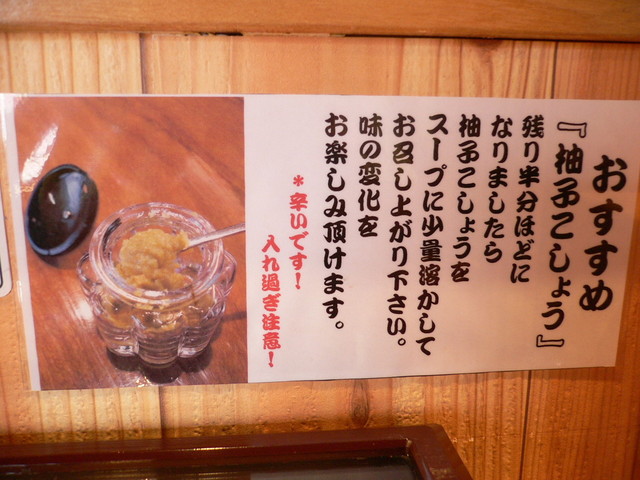 おすすめ
『柚子こしょう』
残り半分ほどに
なりましたら
柚子こしょうを
スープに少量溶かして
お召し上がり下さい。
味の変化を
お楽しみ頂けます。
＊辛いです！
入れ過ぎ注意！